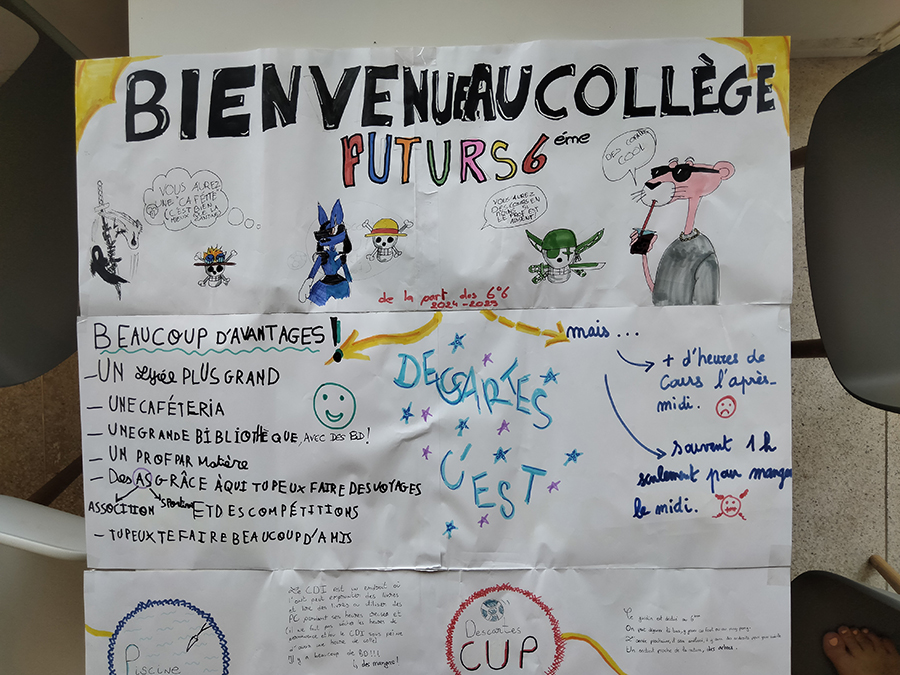 BIENVENUE AU COLLÈGE
FUTURS 6 éme
VOUS AUREZ
UNE "CAFÈT"
(C'EST BIEN
MIEUX QUE
VOUS AUREZ
DES COURS EN
MOINS SI
LE PROF EST
ABSENT
DES COURS
COOL
de la part des 6°6
2024-2025
BEAUCOUP D'AVANTAGES!
- UN Lycée PLUS GRAND
- UNE CAFÉTERIA
- UNE GRANDE BIBLIOTHEQUE, AVEC DES BD!
- UN PROF PAR Matière
- Des AS GRÂCE À QUI TU PEUX FAIRE DES VOYAGES
ASSOCIITION Sportive ET DES COMPÉTITIONS
- TU PEUX TE FAIRE BEAUCOUP D'AMIS
DESCARTES
C'EST
mais ...
+ d'heures de
cours l'après-
midi.
souvent 1 h
seulement pour manger
le midi.
Piscine
Le CDI est un endroit où
l'on peut emprunter des livres
et lire des livres ou utiliser des
PC pendant vos heures creuses et
Il y a beaucoup de BD!!!
↳ des mangas!
Descartes
CUP
Le gardin est dédié au 6ème
Un endroit proche de la nature, des arbres.